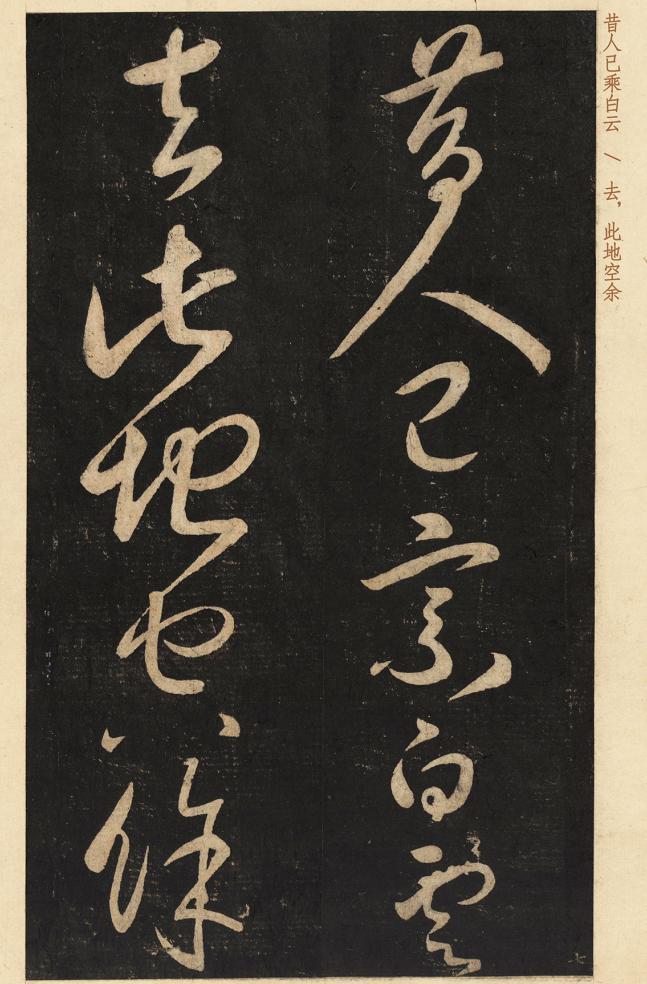 昔人已乘白云 \ 去，此地空余
昔人已乘白雲
去此地空餘
七